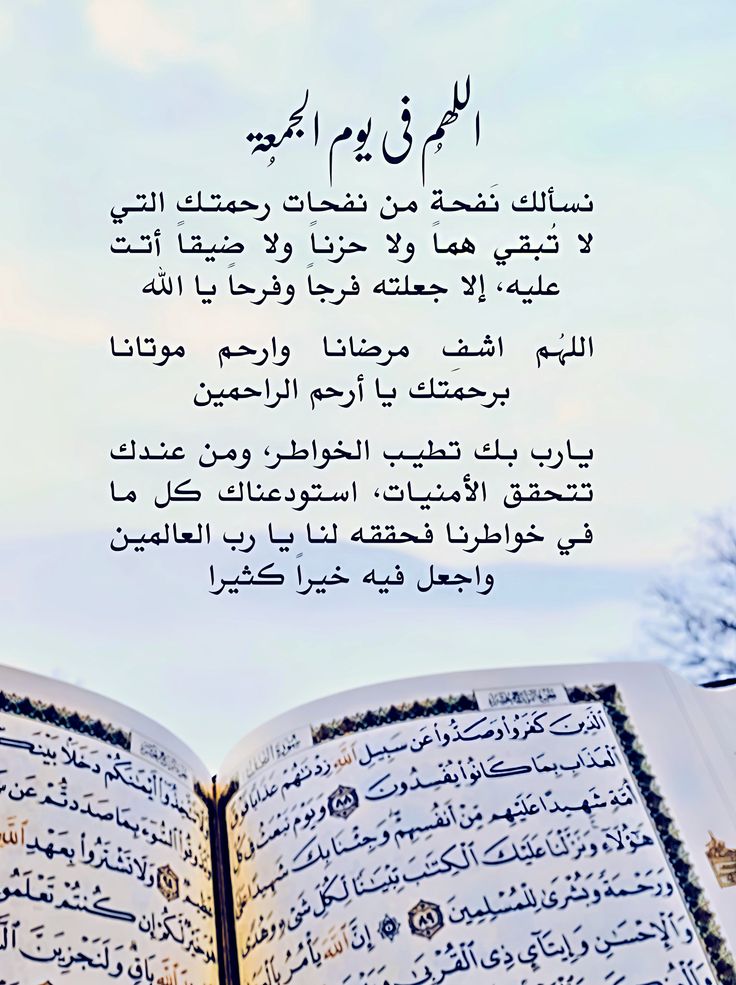 اللهُم في يوم الجمعة
نسألك نَفحة من نفحات رحمتك التي
لا تُبقي هماً ولا حزناً ولا ضيقاً أتت
عليه، إلا جعلته فرجاً وفرحاً يا الله
اللهُم اشفِ مرضانا وارحم موتانا
برحمتك يا أرحم الراحمين
يارب بك تطيب الخواطر، ومن عندك
تتحقق الأمنيات، استودعناك كل ما
في خواطرنا فحققه لنا يا رب العالمين
واجعل فيه خيراً كثيرا
الَّذِينَ كَفَرُوا وَصَدُّوا عَن سَبِيلِ اللَّهِ زِدْنَٰهُمْ عَذَابًا فَوْقَ
الْعَذَابِ بِمَا كَانُوا يُفْسِدُونَ ٨٨ وَيَوْمَ نَبْعَثُ فِي كُلِّ
أُمَّةٍ شَهِيدًا عَلَيْهِم مِّنْ أَنفُسِهِمْ وَجِئْنَا بِكَ شَهِيدًا عَلَىٰ
هَٰؤُلَاءِ وَنَزَّلْنَا عَلَيْكَ الْكِتَٰبَ تِبْيَٰنًا لِّكُلِّ شَيْءٍ وَهُدًى
وَرَحْمَةً وَبُشْرَىٰ لِلْمُسْلِمِينَ ٨٩ إِنَّ اللَّهَ يَأْمُرُ بِالْعَدْلِ
وَالْإِحْسَٰنِ وَإِيتَآئِ ذِي الْقُرْبَىٰ
وَلَا تَتَّخِذُوا أَيْمَٰنَكُمْ دَخَلًا بَيْنَكُمْ
وَتَذُوقُوا السُّوءَ بِمَا صَدَدتُّمْ عَن
عَظِيمٌ وَلَا تَشْتَرُوا بِعَهْدِ اللَّهِ
هُوَ خَيْرٌ لَّكُمْ إِن كُنتُمْ تَعْلَمُونَ
بَاقٍ وَلَنَجْزِيَنَّ